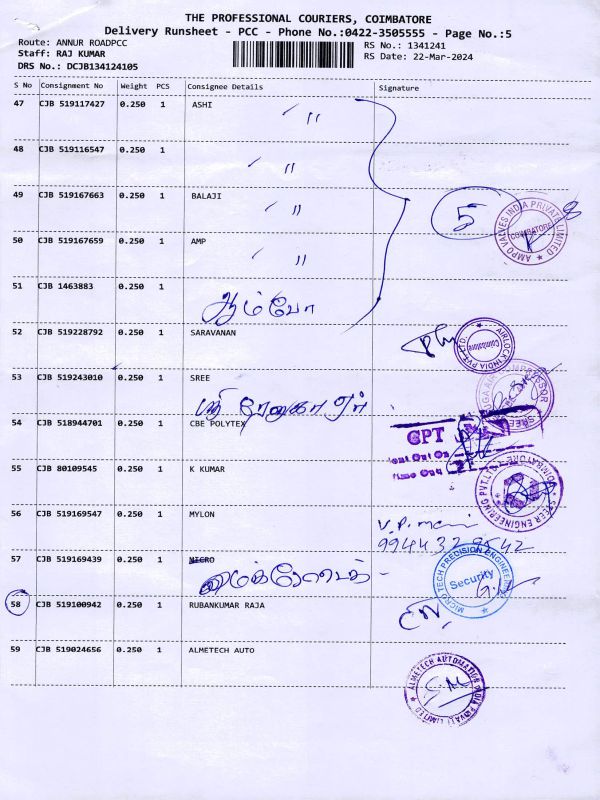 THE PROFESSIONAL COURIERS, COIMBATORE
Delivery Runsheet - PCC - Phone No.:0422-3505555 - Page No.:5
Route: ANNUR ROADPCC
RS No.: 1341241
Staff: RAJ KUMAR
RS Date: 22-Mar-2024
DRS No.: DCJB134124105
S No Consignment No Weight PCS Consignee Details Signature
47 CJB 519117427 0.250 1 ASHI
〃
48 CJB 519116547 0.250 1
〃
49 CJB 519167663 0.250 1 BALAJI
〃
5
AMPO VALVES INDIA PRIVATE LIMITED
COIMBATORE
50 CJB 519167659 0.250 1 AMP
〃
51 CJB 1463883 0.250 1
ஆம்போ
52 CJB 519228792 0.250 1 SARAVANAN
AIRLOCK INDIA PVT.LTD.
Coimbatore
53 CJB 519243010 0.250 1 SREE
ஸ்ரீ ரேணுகா ஏர்
SREE COMPRESSOR
54 CJB 518944701 0.250 1 CBE POLYTEX
CPT
Sent Out On
Time Out
55 CJB 80109545 0.250 1 K KUMAR
STEER ENGINEERING PVT.LTD
56 CJB 519169547 0.250 1 MYLON
V.P. mani
9944329542
57 CJB 519169439 0.250 1 MICRO
மைக்ரோடெக்
MICRO TECH PRECISION ENGINEERING
Security
58 CJB 519100942 0.250 1 RUBANKUMAR RAJA
59 CJB 519024656 0.250 1 ALMETECH AUTO
ALMETECH AUTOMATION INDIA PRIVATE LIMITED